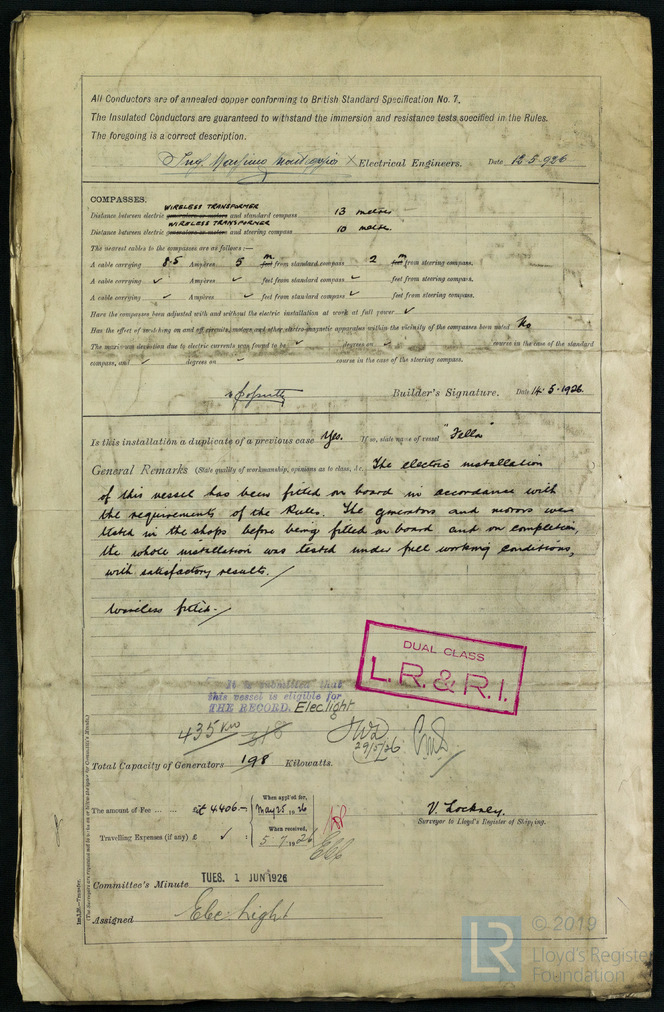 All Conductors are of annealed copper conforming to British Standard Specification No. 7.
The Insulated Conductors are guaranteed to withstand the immersion and resistance tests specified in the Rules.
The foregoing is a correct description.
Electrical Engineers. Date 12·5·926
COMPASSES.
WIRELESS TRANSFORMER
Distance between electric generators or motors and standard compass 13 metres
WIRELESS TRANSFORMER
Distance between electric generators or motors and steering compass 10 metres.
The nearest cables to the compasses are as follows:—
A cable carrying 8·5 Ampères 5 m feet from standard compass 2 m feet from steering compass.
A cable carrying ✓ Ampères ✓ feet from standard compass ✓ feet from steering compass.
A cable carrying ✓ Ampères ✓ feet from standard compass ✓ feet from steering compass.
Have the compasses been adjusted with and without the electric installation at work at full power ✓
Has the effect of switching on and off circuits, motors and other electro-magnetic apparatus within the vicinity of the compasses been noted No
The maximum deviation due to electric currents was found to be ✓ degrees on ✓ course in the case of the standard
compass, and ✓ degrees on ✓ course in the case of the steering compass.
Builder's Signature. Date 14·5·1926.
Is this installation a duplicate of a previous case Yes. If so, state name of vessel "Fella"
General Remarks (State quality of workmanship, opinions as to class, &c. The electric installation
of this vessel has been fitted on board in accordance with
the requirements of the Rules. The generators and motors were
tested in the shops before being fitted on board and on completion,
the whole installation was tested under full working conditions,
with satisfactory results.
Wireless fitted.
DUAL CLASS
L.R. & R.I.
It is submitted that
this vessel is eligible for
THE RECORD. Elec light
435 Kw 318
29/5/26
Total Capacity of Generators 198 Kilowatts.
The amount of Fee ... ... £it 4406.— When applied for, May 25 1926
Travelling Expenses (if any) £ ✓ : When received, 5·7·1926
V. Lockney.
Surveyor to Lloyd's Register of Shipping.
Committee's Minute TUES. 1 JUN 1926
Assigned Elec: Light
© 2019
LR Lloyd's Register
Foundation